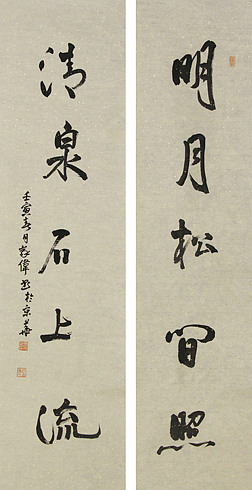 明月松間照
清泉石上流
壬寅春月敬偉書於京華